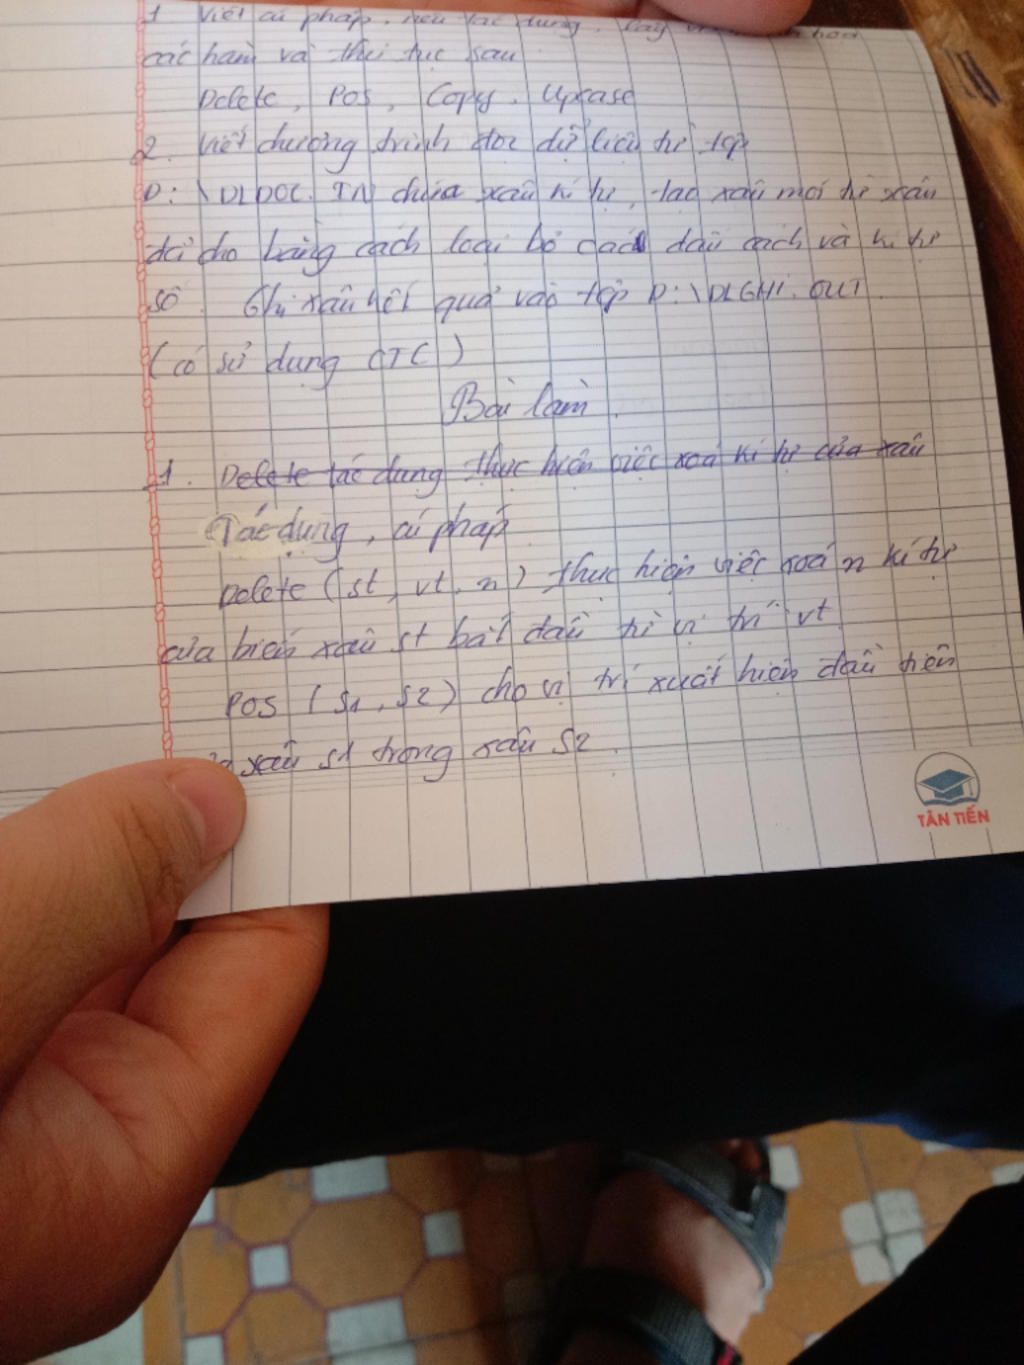 1 Viết cú pháp, nêu tác dụng, lấy hoạ
các hàm và thủ tục sau
Delete, Pos, Copy, Upcase
2. Viết chương trình đọc dữ liệu từ tệp
D:\DLDOC.IN chứa xâu kí tự, tạo xâu mới từ xâu
đã cho bằng cách loại bỏ các dấu cách và kí tự
số. Ghi xâu kết quả vào tệp D:\DLGHI.OUT
(có sử dụng CTC)
Bài làm.
1. Delete tác dụng thực hiện việc xoá kí tự của xâu
Tác dụng, cú pháp
Delete (st, vt, n) thực hiện việc xoá n kí tự
của biến xâu st bắt đầu từ vị trí vt
Pos (S1, S2) cho vị trí xuất hiện đầu tiên
xâu S1 trong xâu S2.
TÂN TIẾN